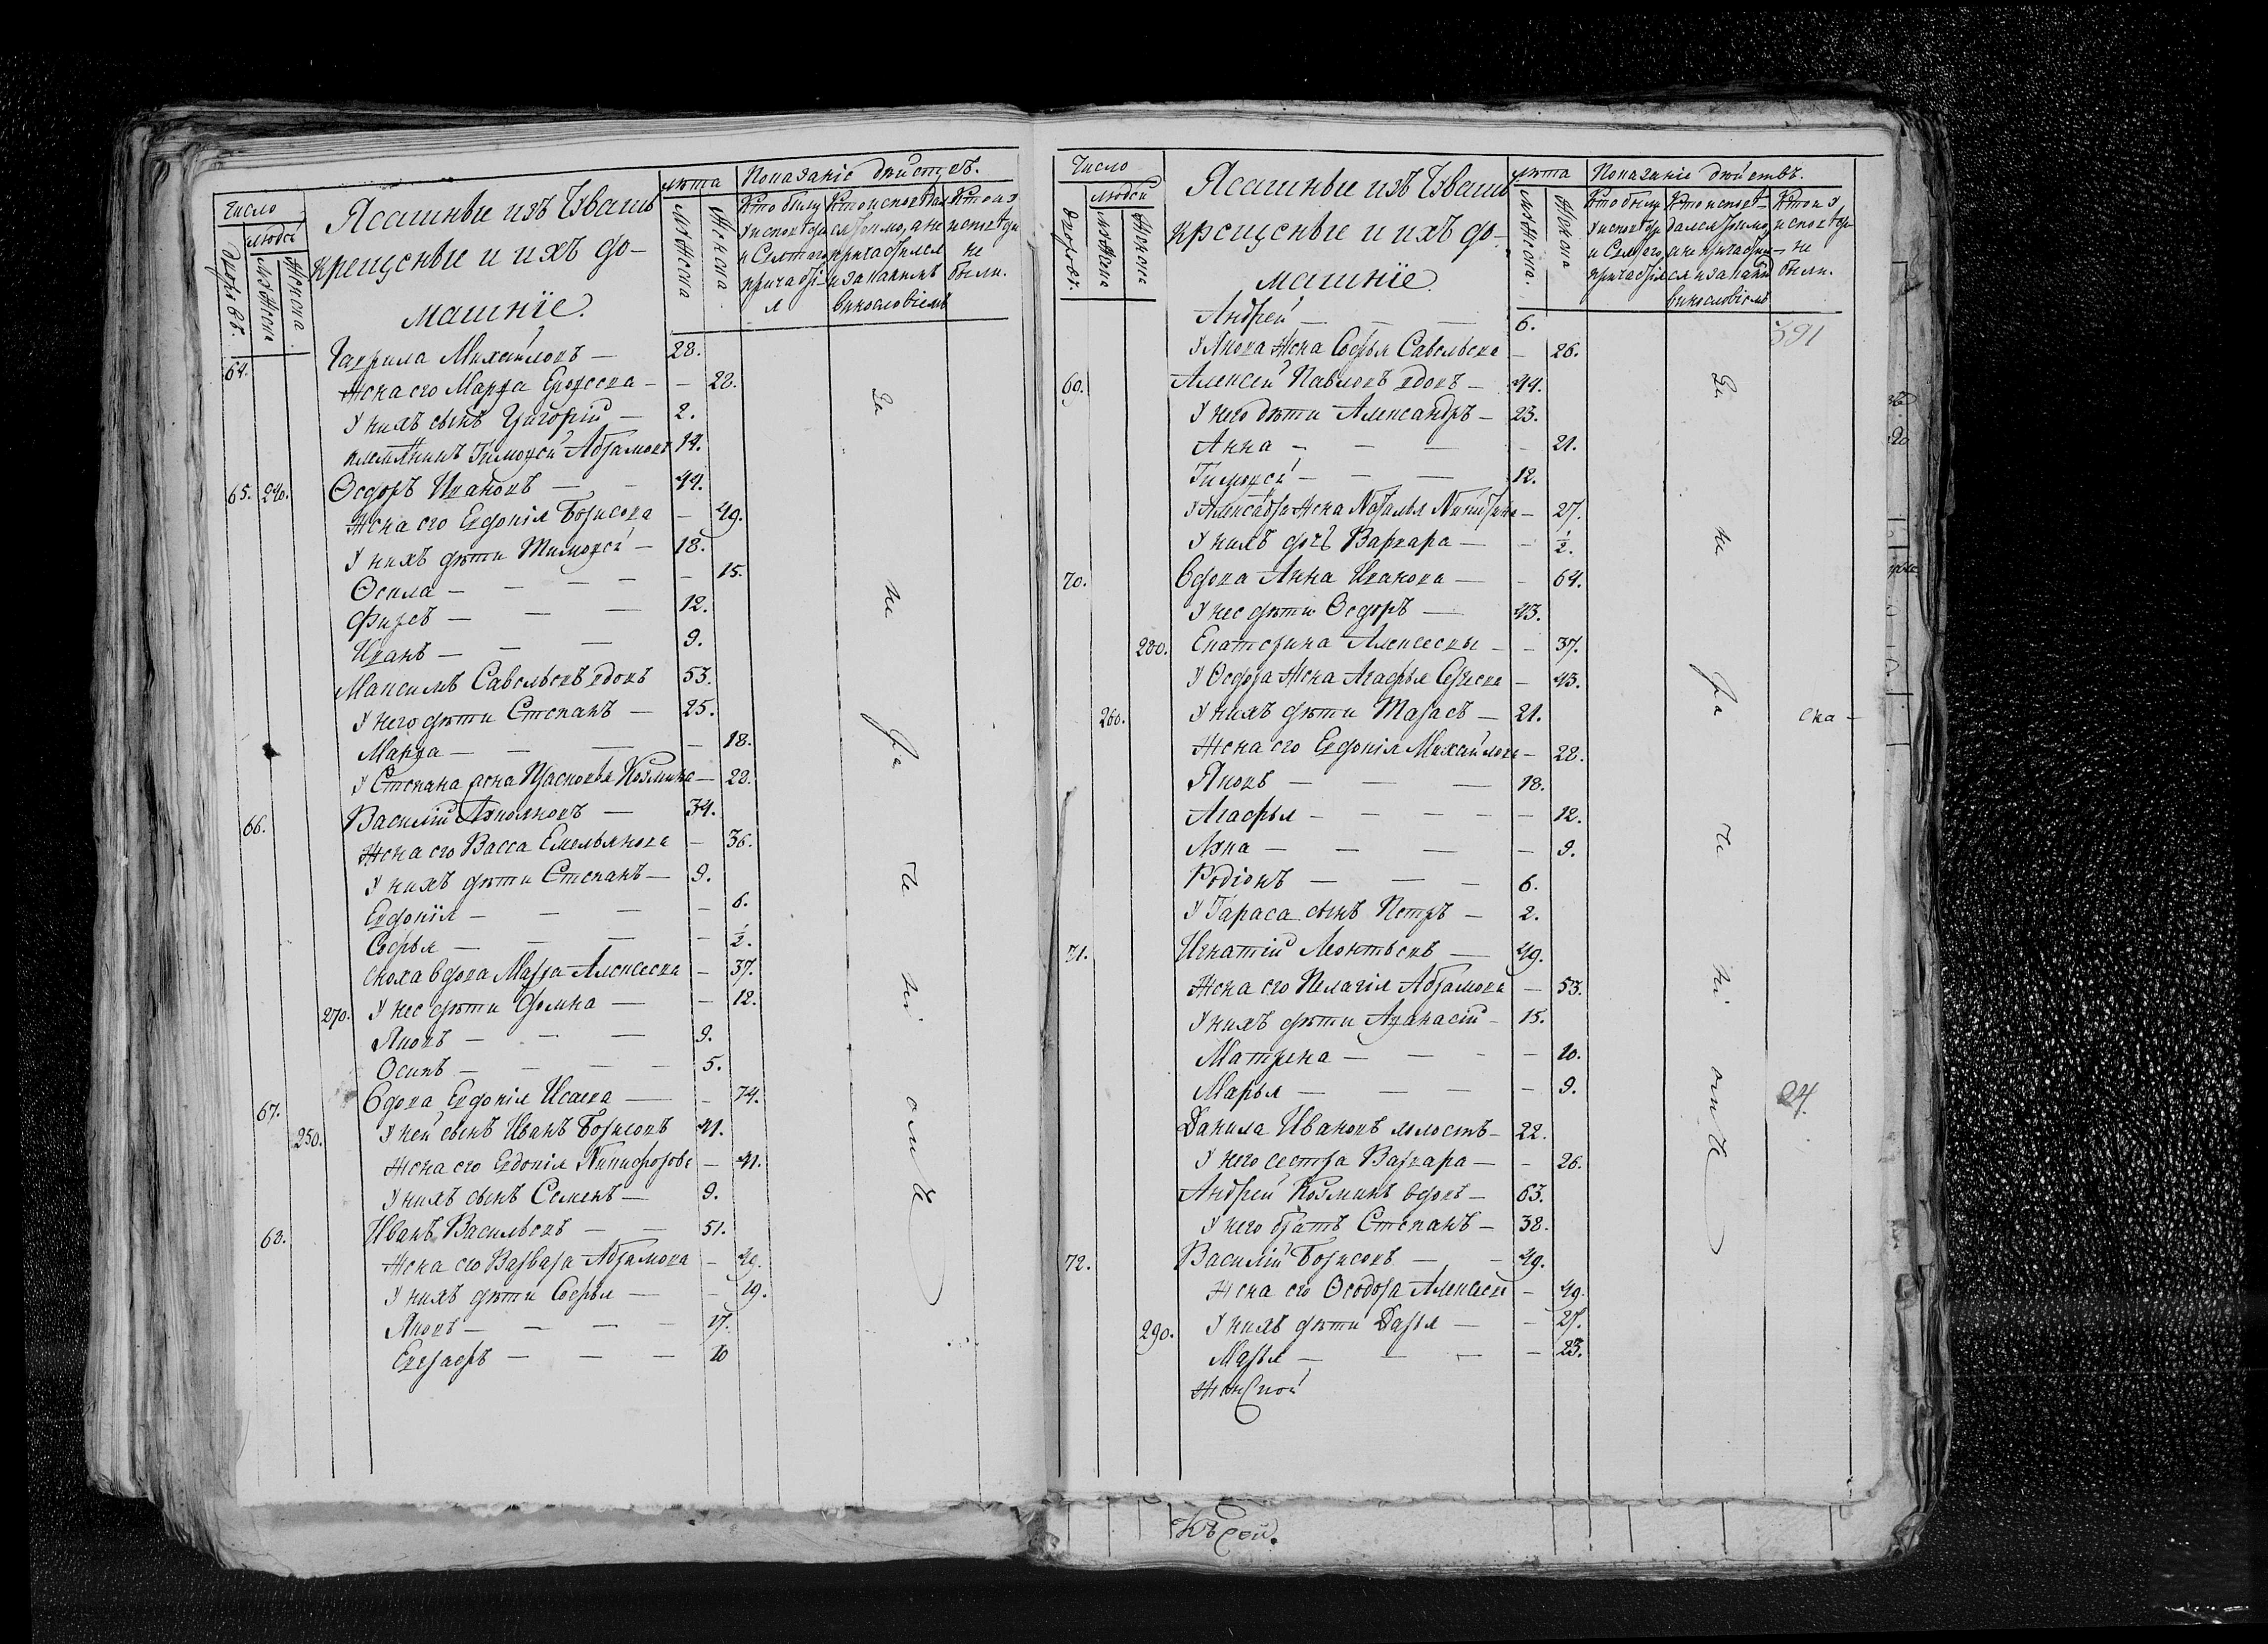 Число
людей
дворовъ.
мужска
женска
Ясашные изъ Чувашъ
крещеные и ихъ до-
машнїе.
лѣта
мужска
женска
Показаніе дѣйствъ.
Кто былъ
у исповѣди
и Святаго
причасті-
я
Кто исповѣдал
ся токмо, а не
причастился
и за какимъ
винословіемъ
Кто и у
исповѣди
не
были.
64. Гаврила Михайловъ — 28.
Жена его Марѳа Ерофеева — 28.
У нихъ сынъ Григорій — 2.
племянникъ Тимофей Абрамовъ 14.
65. 240. Ѳедоръ Ивановъ — 44.
Жена его Евдокія Борисова — 49.
У нихъ дѣти Тимофей — 18.
Ѳекла — 15.
Фирсъ — 12.
Иванъ — 9.
Максимъ Савельевъ вдовъ 53.
У него дѣти Степанъ — 25.
Марѳа — 18.
У Степана жена Прасковья Козмина — 28.
66. Василій — 34.
Жена его Васса Емельянова — 36.
У нихъ дѣти Степанъ — 9.
Евдокїя — 6.
Софья — 1/2.
сноха вдова Марѳа Алексеева — 37.
270. У нее дѣти Фомка — 12.
Яковъ — 9.
Осипъ — 5.
67. Вдова Евдокія Исаева — 74.
250. У ней сынъ Иванъ Борисовъ 41.
Жена его Евдокія Никифорова — 41.
У нихъ сынъ Семенъ — 9.
68. Иванъ Васильевъ — 51.
Жена его Варвара Абрамова — 49.
У нихъ дѣти Софья — 19.
Яковъ — 17.
Евграфъ — 10
За не ра че ні ом ъ
Число
людей
дворовъ.
мужска
женска
Ясашные изъ Чувашъ
крещеные и ихъ до-
машнїе
лѣта
мужска.
женска
Показаніе дѣйствъ.
Кто былъ
у исповѣди
и Святаго
причастія
Кто исповѣ-
дался токмо,
а не причасти-
ся и за каким
винословіемъ
Кто и у
исповѣди
не
были.
391
Андрей — 6.
У Якова жена Софья Савельева — 26.
69. Алексей Павловъ вдовъ — 44.
У него дѣти Александръ — 23.
Анна — 21.
Тимофей — 12.
У Алексадра жена Наталья Никитина — 27.
У нихъ дочь Варвара — 1/2.
70. Вдова Анна Иванова — 64.
У нее дѣти Ѳедоръ — 43.
280. Екатерина Алексеевы — 37.
У Ѳедора жена Агафья Сергеева — 43.
260. У нихъ дѣти Тарасъ — 21.
Жена его Евдокія Михайлова — 22.
Яковъ — 18.
Агафья — 12.
Анна — 9.
Родіонъ — 6.
У Тараса сынъ Петръ — 2.
71. Игнатій Леонтьевъ — 49.
Жена его Пелагія Абрамова — 53.
У нихъ дѣти Афанасій — 15.
Матрена — 10.
Марья — 9.
Данила Ивановъ холостъ — 22.
У него сестра Варвара — 26.
Андрей Козминъ вдовъ — 63.
У него братъ Степанъ — 38.
72. Василій Борисовъ — 49.
Жена его Ѳеодора Алексеев — 49.
290. У нихъ дѣти Дарья — 27.
Марья — 23.
За не ра че ні ом ъ
ска-
24.